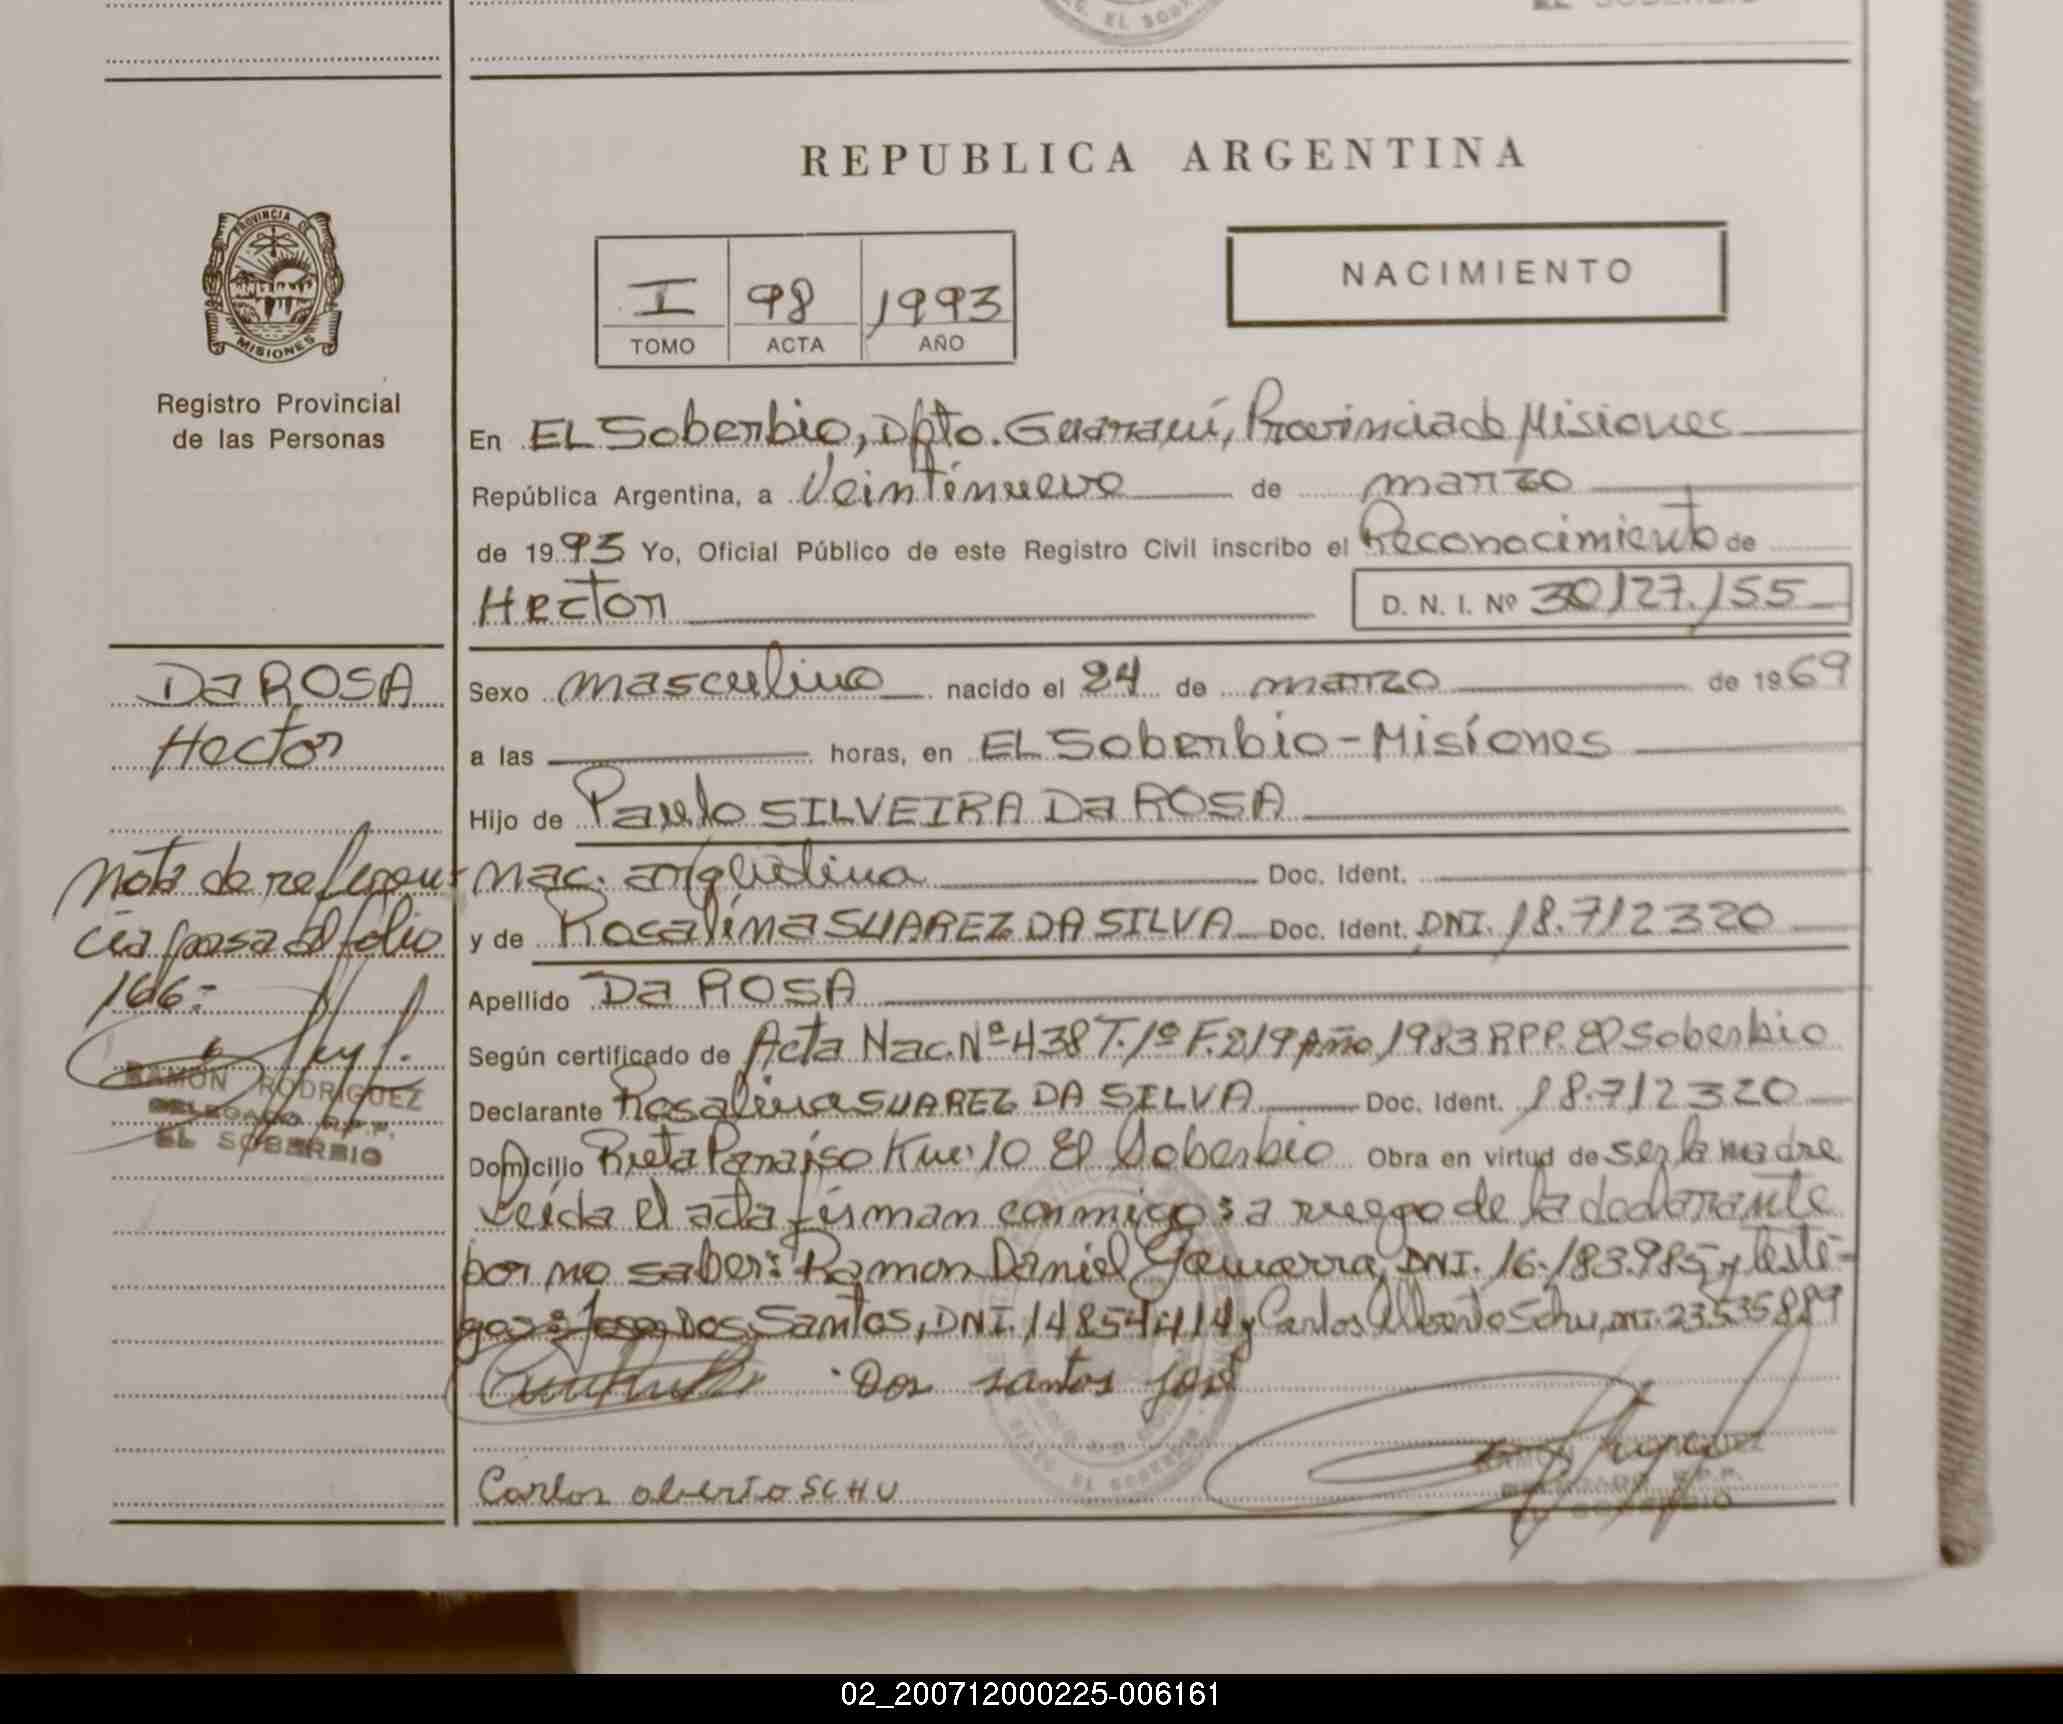 REPUBLICA ARGENTINA
PROVINCIA DE
MISIONES
Registro Provincial
de las Personas
I 98 1993
TOMO ACTA AÑO
NACIMIENTO
En EL Soberbio, Dpto. Guaraní, Provincia de Misiones
República Argentina, a Veintinueve de marzo
de 1993 Yo, Oficial Público de este Registro Civil inscribo el Reconocimiento de
Hector D. N. I. Nº 30127.155
Da ROSA
Hector
Sexo masculino nacido el 24 de marzo de 1969
a las horas, en EL Soberbio - Misiones
Hijo de Paulo SILVEIRA Da ROSA
nac. argentina Doc. Ident.
y de Rosalina SUAREZ DA SILVA Doc. Ident. DNI. 18.712320
Apellido Da ROSA
Según certificado de Acta Nac. Nº 438 T. 1º F. 219 Año 1983 RPP. El Soberbio
Declarante Rosalina SUAREZ DA SILVA Doc. Ident. 18.712320
Domicilio Ruta Paraíso Km. 10 El Soberbio Obra en virtud de ser la madre
Leída el acta firman conmigo: a ruego de la declarante
por no saber: Ramon Daniel Gamarra, DNI. 16.183.985 y testi-
gos: Jose Dos Santos, DNI. 14854414 y Carlos Alberto Schu, DNI. 23535889
Dos santos José
Carlos alberto SCHU
Nota de referen-
cia pasa al folio
166:-
RAMON RODRIGUEZ
DELEGADO R.P.P.
EL SOBERBIO
DELEGADO R.P.P.
EL SOBERBIO
02_200712000225-006161